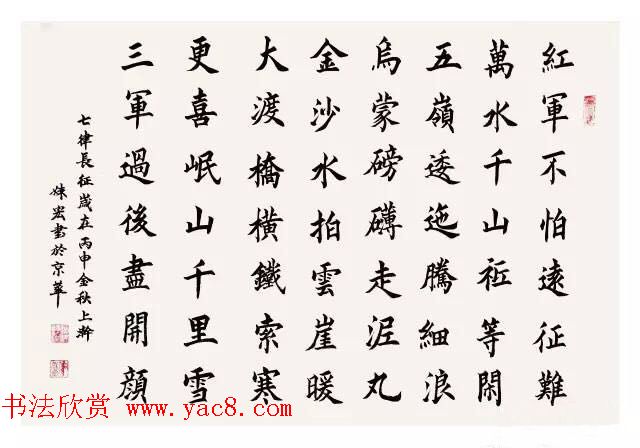 紅軍不怕遠征難
萬水千山祗等閑
五嶺逶迤騰細浪
烏蒙磅礴走泥丸
金沙水拍雲崖暖
大渡橋橫鐵索寒
更喜岷山千里雪
三軍過後盡開顔
七律長征歲在丙申金秋上澣
宏書於京華
书法欣赏 www.yac8.com